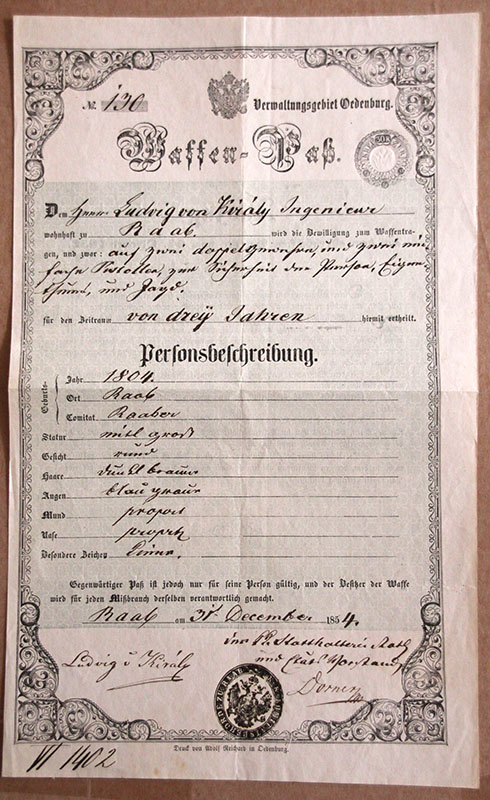 № 130 Verwaltungsgebiet Oedenburg.
Waffen-Paß.
Dem Herrn Ludwig von Király Ingenieur
wohnhaft zu Raab, wird die Bewilligung zum Waffentra-
gen, und zwar: auf zwei doppel und zwei ein-
fache zur Sicherheit der Person, Eigen-
thums, und Jagd.
für den Zeitraum von dreÿ Jahren hiemit ertheilt.
Personsbeschreibung.
Geburts-
Jahr 1804.
Ort Raab
Comitat Raaber
Statur mitl groß
Gesicht rund
Haare dunkl braun
Augen blau grau
Mund proport
Nase proport
Besondere Zeichen Keine.
Gegenwärtiger Paß ist jedoch nur für seine Person gültig, und der Besitzer der Waffe
wird für jeden Mißbrauch derselben verantwortlich gemacht.
Raab am 31 December 1854.
Der Statthalterei Rath
und Vorstand
Ludwig v Király
Dorner
Druck von Adolf Reichard in Oedenburg.
VI 1402